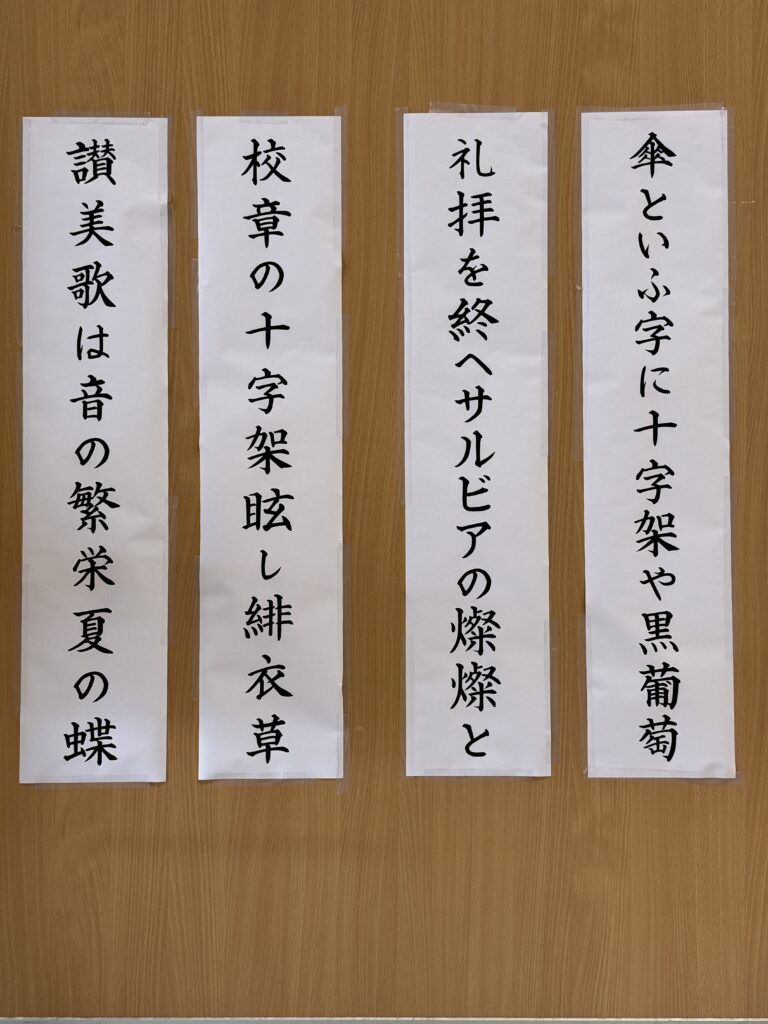 傘といふ字に十字架や黒葡萄
礼拝を終へサルビアの燦燦と
校章の十字架眩し緋衣草
讃美歌は音の繁栄夏の蝶